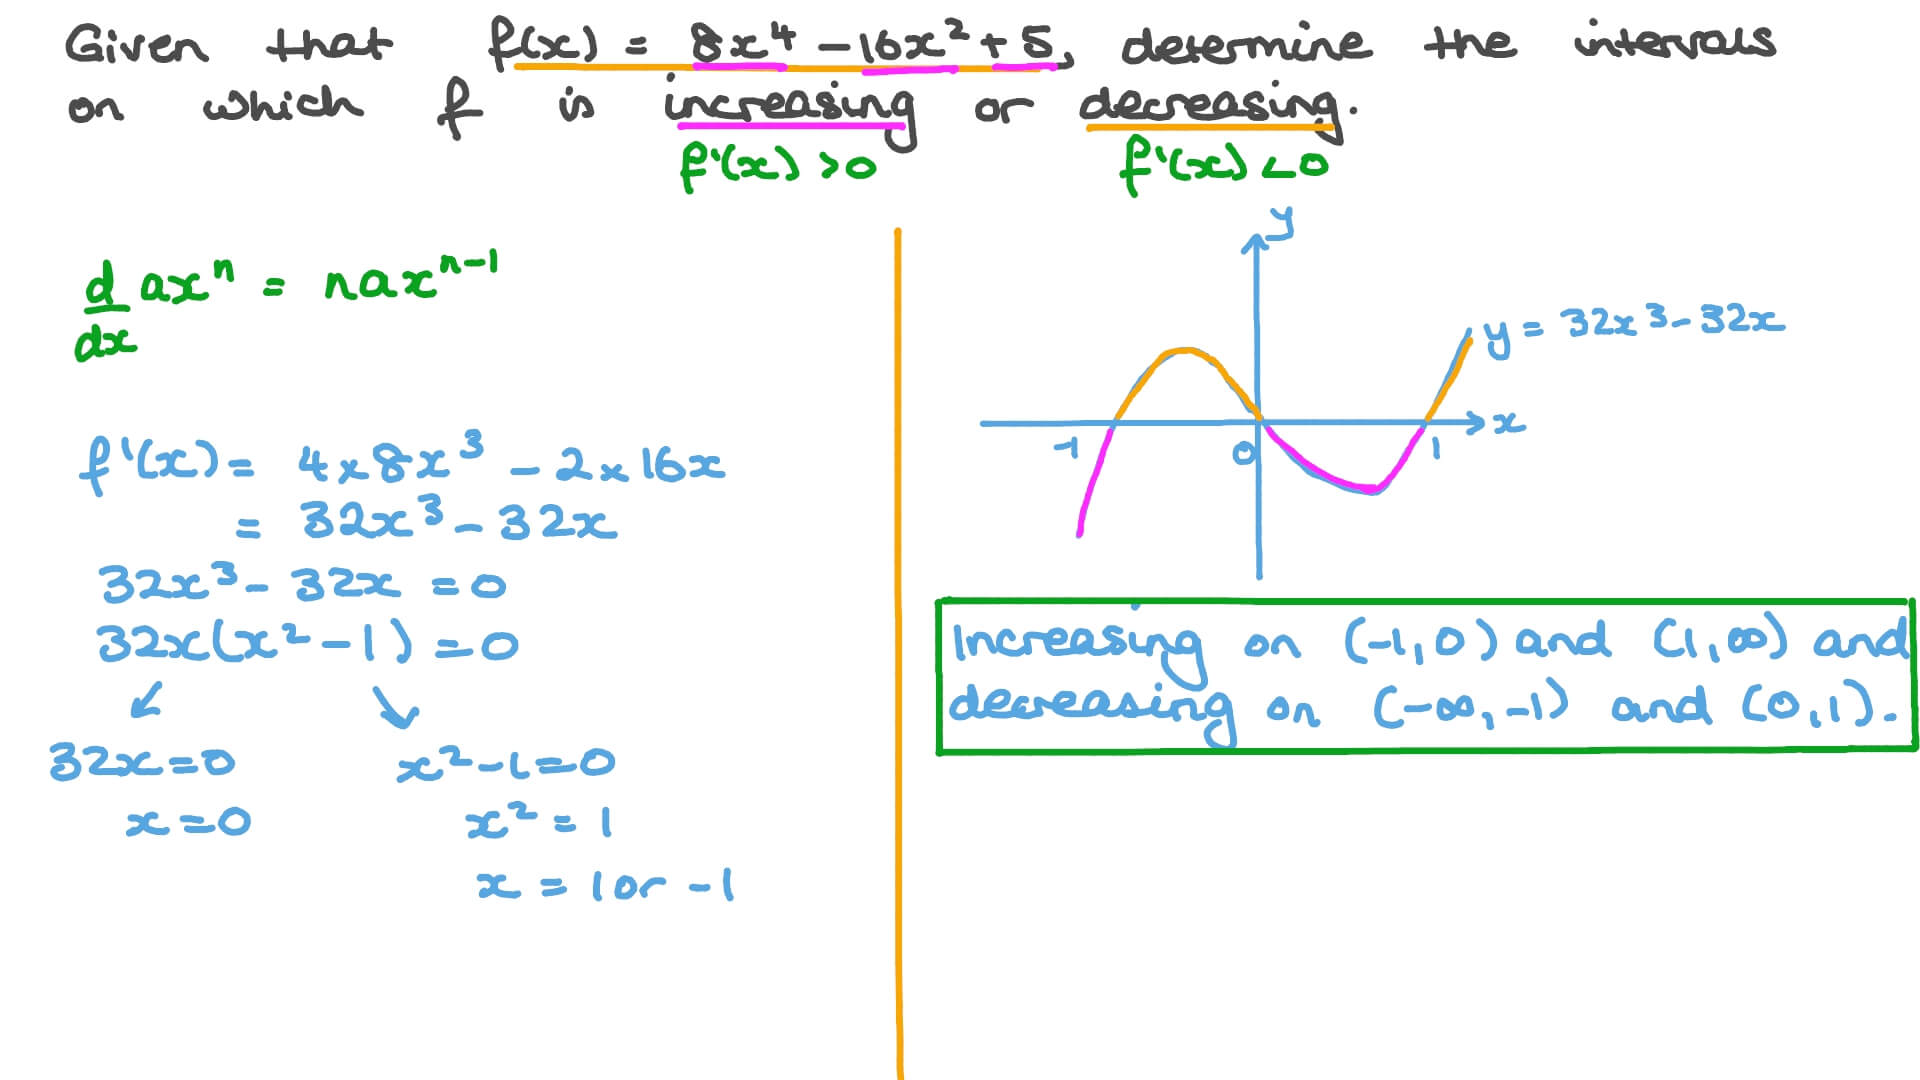 Given that f(x) = 8x⁴ - 16x² + 5, determine the intervals
on which f is increasing or decreasing.
f'(x) > 0 f'(x) < 0
d/dx axⁿ = naxⁿ⁻¹
f'(x) = 4 × 8x³ - 2 × 16x
= 32x³ - 32x
32x³ - 32x = 0
32x(x² - 1) = 0
32x = 0 x² - 1 = 0
x = 0 x² = 1
x = 1 or -1
y
y = 32x³ - 32x
x
-1 0 1
Increasing on (-1, 0) and (1, ∞) and
decreasing on (-∞, -1) and (0, 1).